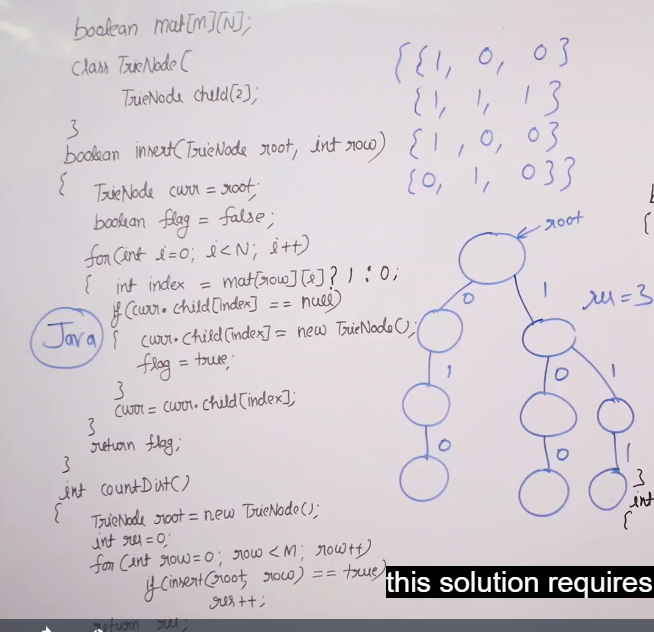 boolean mat[M][N];
class TrieNode{
TrieNode child[2];
}
boolean insert(TrieNode root, int row)
{ TrieNode curr = root;
boolean flag = false;
for(int i=0; i<N; i++)
{ int index = mat[row][i] ? 1 : 0;
if(curr.child[index] == null)
{ curr.child[index] = new TrieNode();
flag = true;
}
curr = curr.child[index];
}
return flag;
}
int countDist()
{ TrieNode root = new TrieNode();
int res=0;
for(int row=0; row<M; row++)
if(insert(root, row) == true)
res++;
return res;
Java
{{1, 0, 0}
{1, 1, 1}
{1, 0, 0}
{0, 1, 0}}
root
0 1
res = 3
1 0 1
0 0 1
{
}
int
{
this solution requires